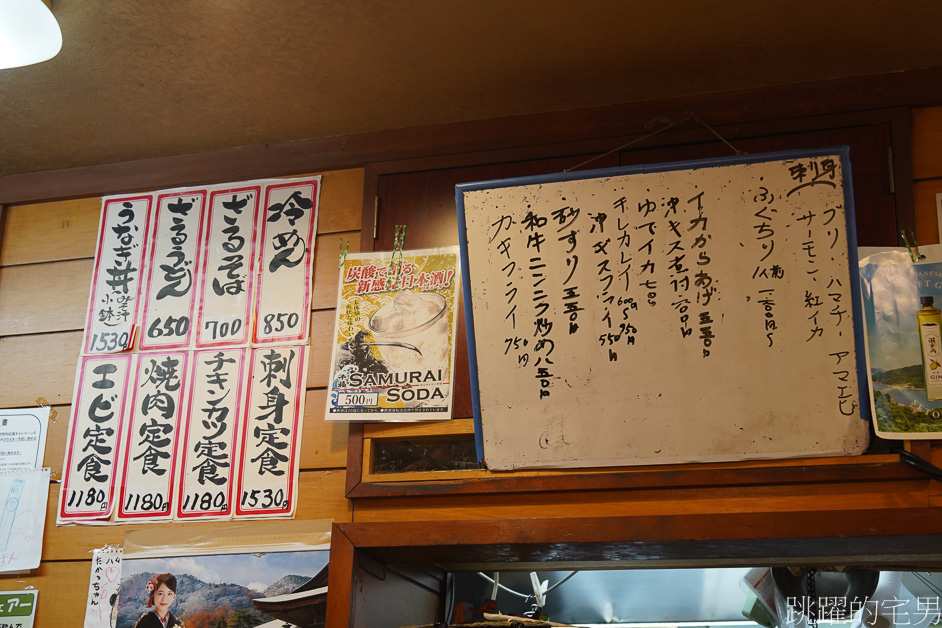 冷めん
850
ざるそば
700
ざるうどん
650
うなぎ丼
みそ汁
小鉢
1530
刺身定食
1530
チキンカツ定食
1180円
焼肉定食
1180円
エビ定食
1180円
炭酸で割る
新感覚日本酒!
SAMURAI
SODA
500円
刺身
ブリ・ハマチ・アマエビ
サーモン・紅イカ
ふぐちり 一人前 一二〇〇円
イカからあげ 五五〇円
沖キス煮付 六〇〇円
ゆでイカ 七〇〇
キレカレイ 600円 950円
沖ギスフライ 550円
砂ずり 五五〇円
和牛ニンニク炒め 八五〇円
カキフライ 750円
GIN
ハム
たかちゃん
跳躍的宅男